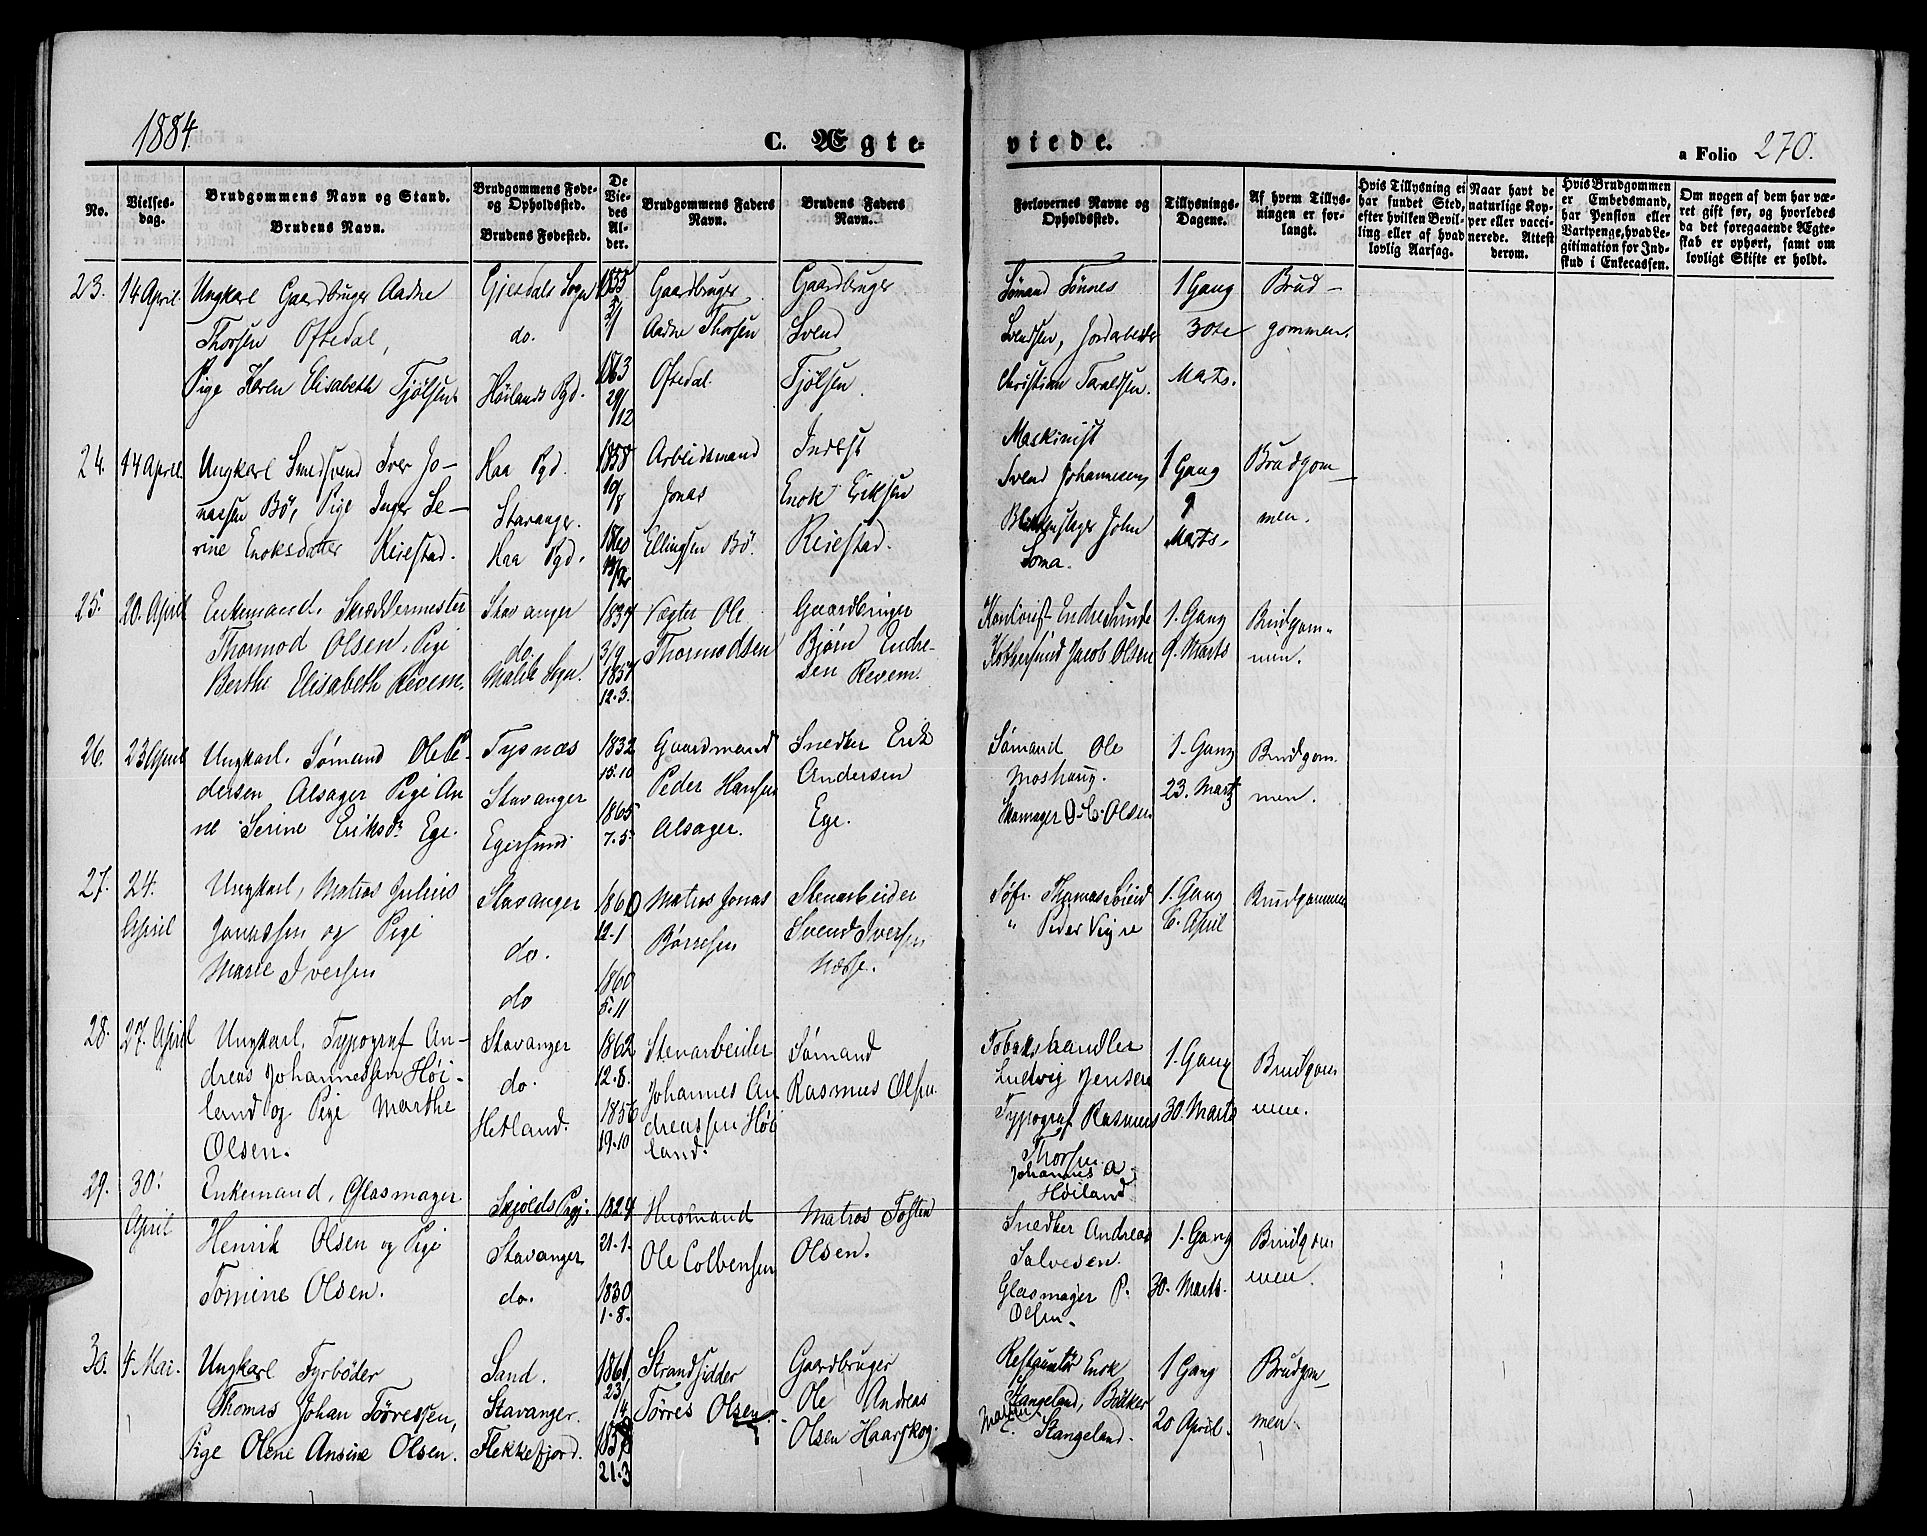 1884.
C. Ægte-
viede.
a Folio 270.
No.
Vielses-
dag.
Brudgommens Navn og Stand.
Brudens Navn.
Brudgommens Føde-
og Opholdssted.
Brudens Fødested.
De
Vie-
des
Al-
der.
Brudgommens Faders
Navn.
Brudens Faders
Navn.
Forlovernes Navne og
Opholdssted.
Tillysnings-
Dagene.
Af hvem Tillys-
ningen er for-
langt.
Hvis Tillysning ei
har fundet Sted,
efter hvilken Bevil-
ling eller af hvad
lovlig Aarsag.
Naar havt de
naturlige Kop-
per eller vacci-
nerede. Attest
derom.
Hvis Brudgommen
er Embedsmand,
har Pension eller
Vartpenge, hvad Le-
gitimation for Ind-
skud i Enkecassen.
Om nogen af dem har væ-
ret gift før, og hvorledes
da det foregaaende Ægte-
skab er ophørt, samt om
lovligt Skifte er holdt.
23.
14 April.
Ungkarl Gaardbruger Aadne
Thorsen Oftedal,
Pige Karen Elisabeth Tjølsen.
Gjesdals Sogn
do.
Høilands Pgd.
1855
2/1
1863
29/12
Gaardbruger
Aadne Thorsen
Oftedal.
Gaardbruger
Svend
Tjølsen.
Sømand Tønnes
Svendsen, Jordarbeider
Christian Taraldsen.
1 Gang
30te
Marts.
Brud-
gommen.
24.
14 April.
Ungkarl Smedsvend Iver Jo-
nassen Bø, Pige Inger Se-
rine Enoksdatter Reiestad.
Haa Pgd.
Stavanger.
Haa Pgd.
1858
10/8
1860
Arbeidsmand
Jonas
Ellingsen Bø.
Inderst
Enok Eriksen
Reiestad.
Maskinist
Svend Johannesen,
Blikkenslager John
Soma.
1 Gang
9
Marts.
Brudgom-
men.
25.
20. April
Enkemand, Skræddermester
Thormod Olsen, Pige
Berthe Elisabeth Revem.
Stavanger
do.
Sogn.
1837
3/9
1857
12.3.
Vægter Ole
Thormodsen
Gaardbruger
Bjørn Endre-
sen Revem.
Endre Sunde
Jacob Olsen
1. Gang
9. Marts
Brudgom-
men.
26.
23 April
Ungkarl. Sømand Ole Pe-
dersen Alsager Pige An
ne Serine Eriksdr Ege.
Tysnæs
Stavanger
Egersund
1832
15.10
1865
7.5
Gaardmand
Peder Hansen
Alsager.
Snedker Erik
Andersen
Ege.
Sømand Ole
Moshaug.
Skomager O. C. Olsen
1. Gang
23. Marts
Brudgom
men.
27.
24.
April
Ungkarl, Matros Julius
Jonassen og Pige
Marie Iversen
Stavanger
do.
do
1860
12.1
1860
5.11
Matros Jonas
Børresen
Stenarbeider
Svend Iversen
Næsse.
Søfr. Thomas
" Peder Vigre
1. Gang
6. April
Brudgommen
28.
27. April
Ungkarl, Typograf An-
dreas Johannessen Høi-
land og Pige Marthe
Olsen.
Stavanger
do.
Hetland.
1862
12.8.
1856
19.10
Stenarbeider
Johannes An
dreassen Høi
land.
Sømand
Rasmus Olsen.
Tobakshandler
Ludvig Jensen
Typograf Rasmus
Thorsen
Johannes A
Høiland
1. Gang
30. Marts
Brudgom
men.
29.
30.
April
Enkemand, Glasmager
Henrik Olsen og Pige
Tomine Olsen.
Skjolds Pgj.
Stavanger
do.
1824
21.1.
1830
1.8.
Husmand
Ole Colbensen
Matros Tosten
Olsen.
Snedker Andreas
Salvesen.
Glasmager P.
Olsen.
1. Gang
30. Marts.
Brudgom
men.
30.
4. Mai.
Ungkarl Fyrbøder
Thomas Johan Tørressen,
Pige Olene Ansine Olsen.
Sand.
Stavanger.
Flekkefjord.
1861
23/4
1858
21.3
Strandsidder
Tørres Olsen.
Gaardbruger
Ole Andreas
Olsen Haarskog.
Restauratør Enok
Stangeland, Bødker
Stangeland.
1 Gang
20 April.
Brudgom-
men.